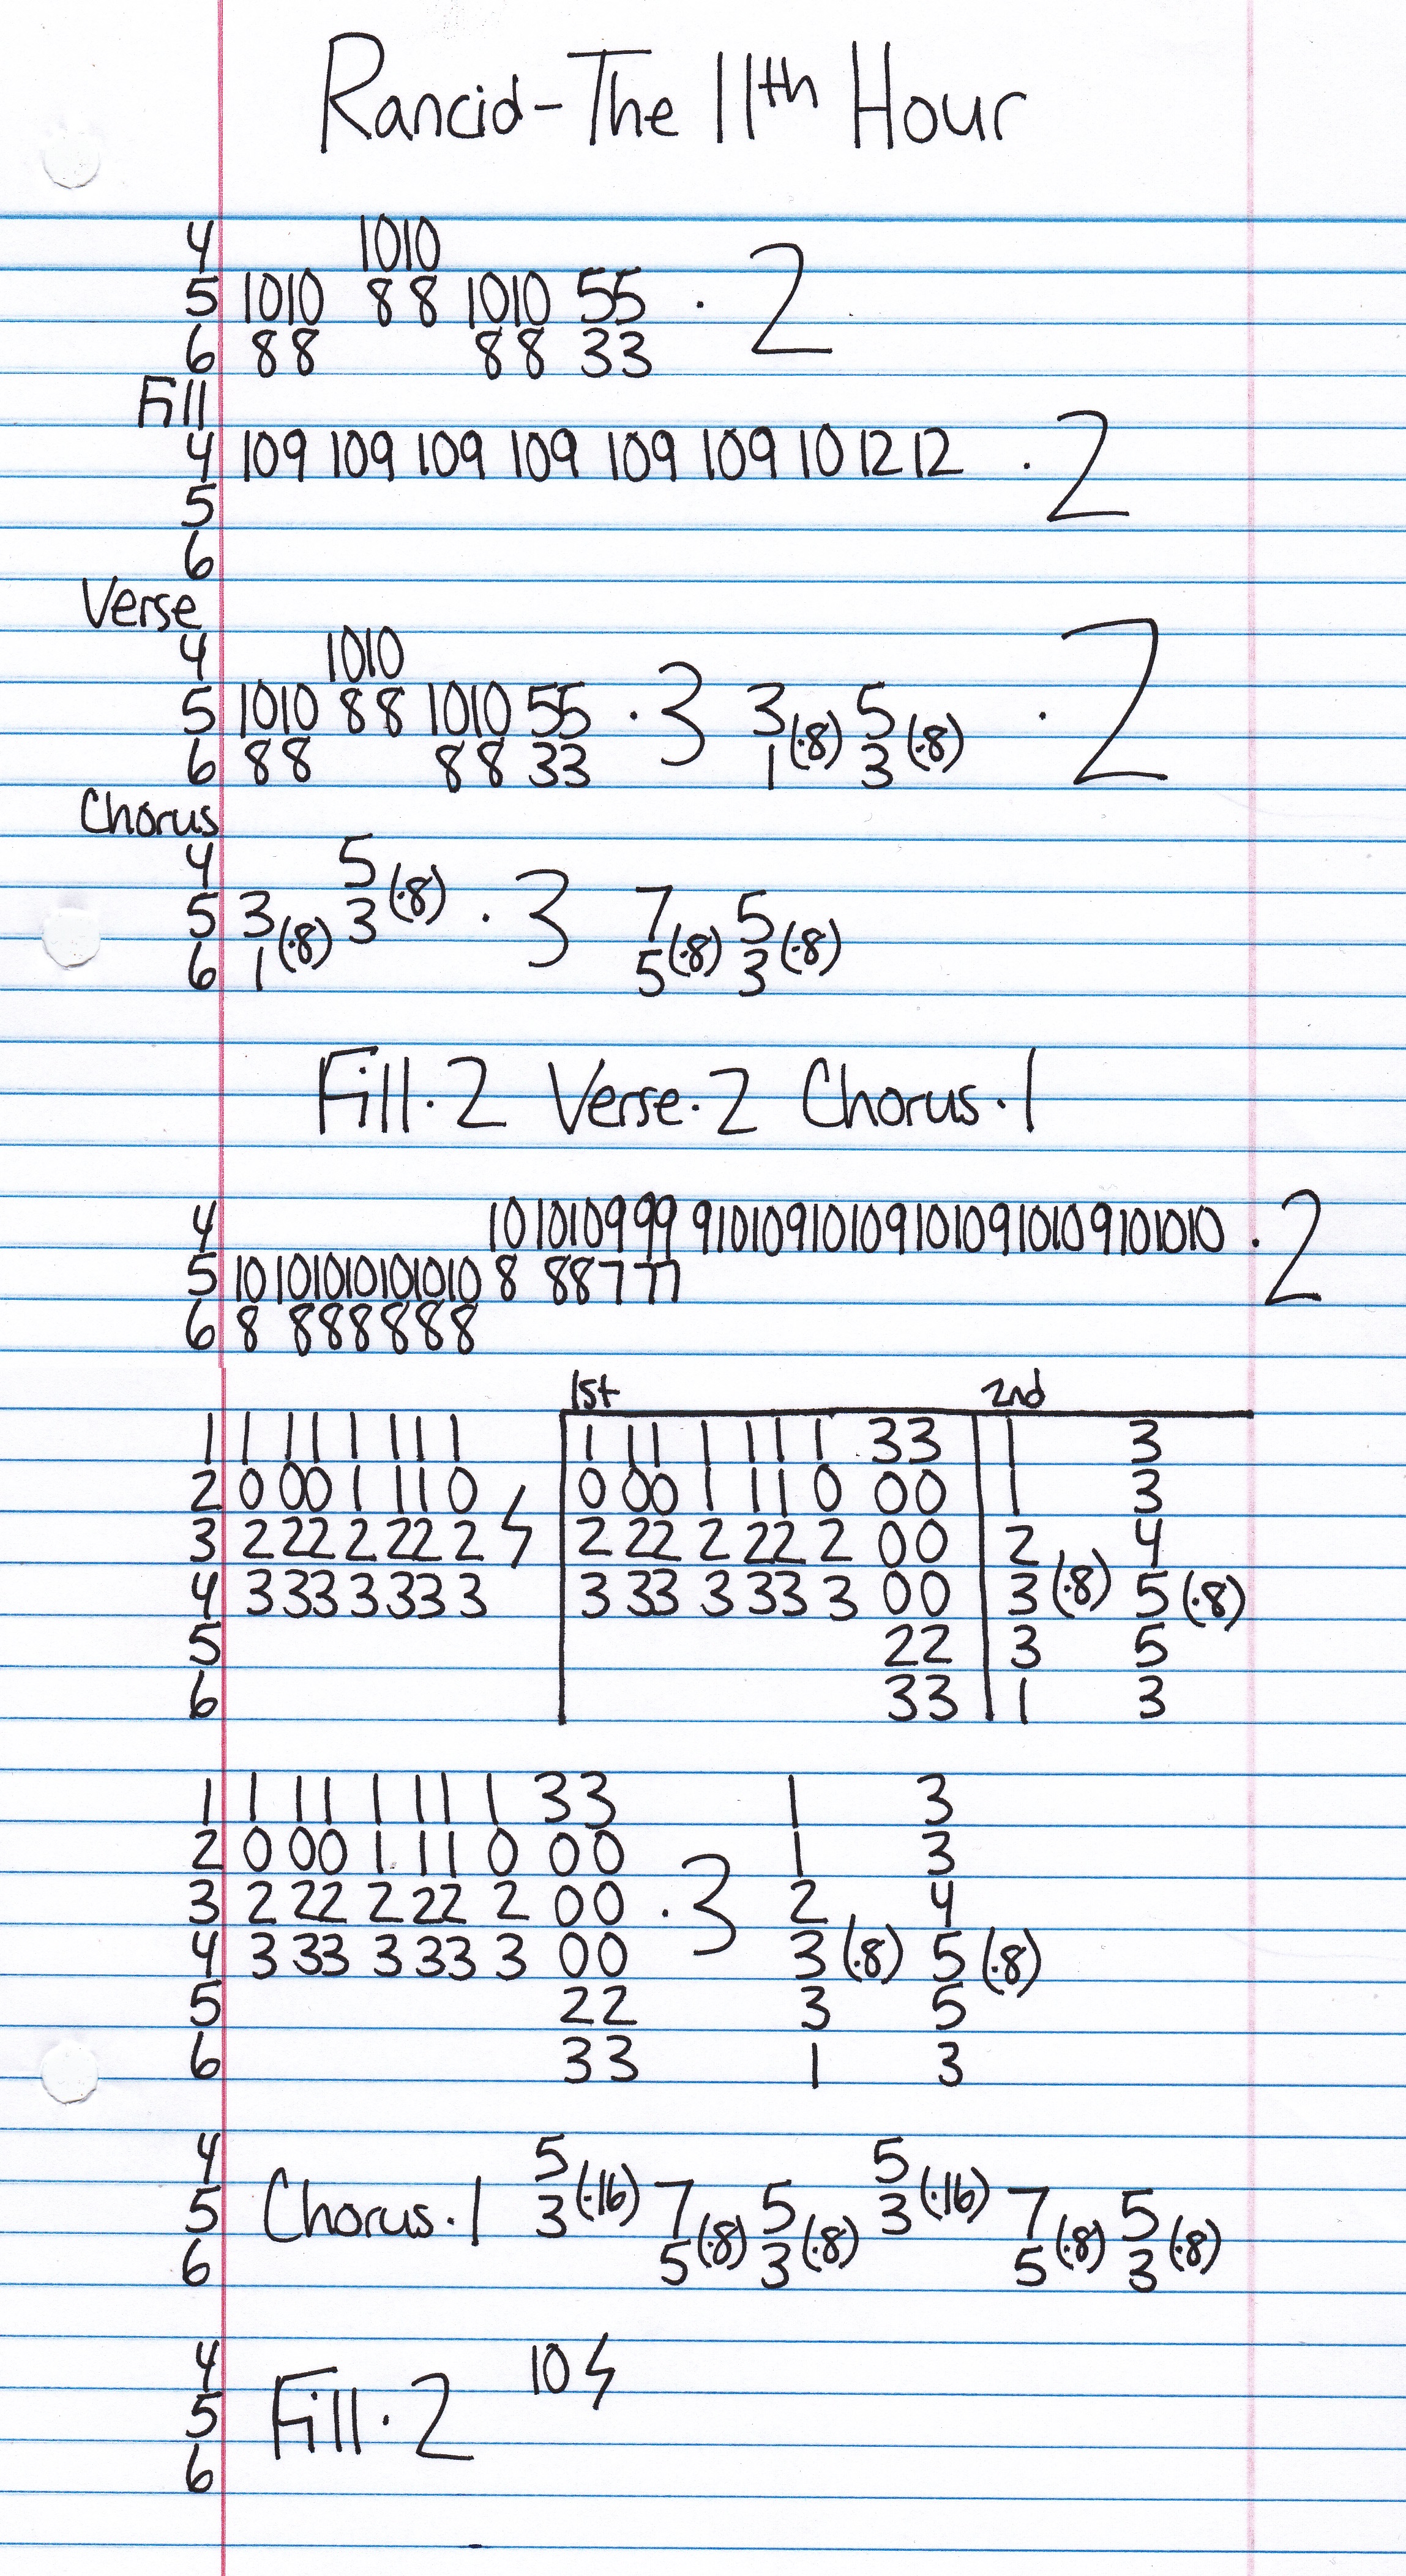 Rancid-The 11th Hour
4 1010
5 1010 88 1010 55 · 2
6 88 88 33
Fill
4 109 109 109 109 109 109 10 12 12 · 2
5
6
Verse
4 1010
5 1010 88 1010 55 · 3 3 (·8) 5 (·8) · 2
6 88 88 33 1 3
Chorus
4 5
5 3 (·8) 3 (·8) · 3 7 (·8) 5 (·8)
6 1 5 3
Fill·2 Verse·2 Chorus·1
4 10 1010999 9101091010910109101091010 10 · 2
5 10 101010101010 8 88777
6 8 888888
1st 2nd
1 1 11 1 11 1 1 11 1 11 1 33 1 3
2 0 00 1 11 0 0 00 1 11 0 00 1 3
3 2 22 2 22 2 2 22 2 22 2 00 2 4
4 3 33 3 33 3 3 33 3 33 3 00 3 (·8) 5 (·8)
5 22 3 5
6 33 1 3
1 1 11 1 11 1 33 1 3
2 0 00 1 11 0 00 1 3
3 2 22 2 22 2 00 · 3 2 4
4 3 33 3 33 3 00 3 (·8) 5 (·8)
5 22 3 5
6 33 1 3
4 5 5
5 Chorus·1 3 (·16) 7 (·8) 5 (·8) 3 (·16) 7 (·8) 5 (·8)
6 5 3 5 3
4 10
5 Fill·2
6